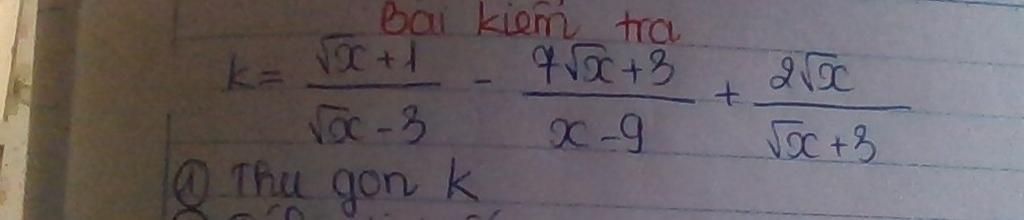 Bài kiểm tra
k = \frac{\sqrt{x}+1}{\sqrt{x}-3} - \frac{7\sqrt{x}+3}{x-9} + \frac{2\sqrt{x}}{\sqrt{x}+3}
① Thu gọn k